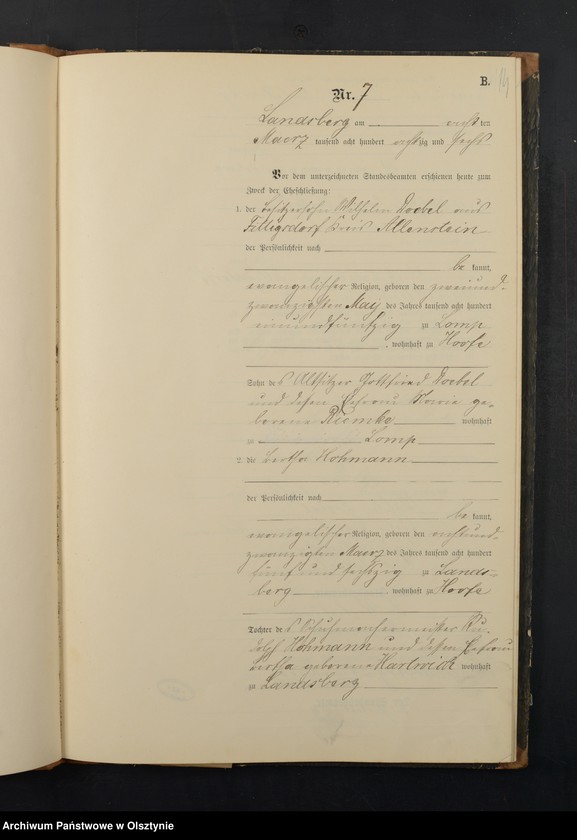 B.
14
Nr. 7
Landsberg am acht ten
Maerz tausend acht hundert achtzig und sechs
Vor dem unterzeichneten Standesbeamten erschienen heute zum
Zweck der Eheschließung:
1. der Besitzersohn Wilhelm Doebel aus
Kreis Allenstein
der Persönlichkeit nach
be kannt,
evangelischer Religion, geboren den zweiund-
zwanzigsten Maj des Jahres tausend acht hundert
einundfünfzig zu Lomp
, wohnhaft zu Hoofe
Sohn des Altsitzer Gottfried Doebel
und dessen Ehefrau Maria ge-
borene Riemke wohnhaft
zu Lomp
2. die Bertha Hohmann
der Persönlichkeit nach
be kannt,
evangelischer Religion, geboren den achtund-
zwanzigten Maerz des Jahres tausend acht hundert
fünf und sechzig zu Lands-
berg , wohnhaft zu Hoofe
Tochter des Schuhmachermeister Ru-
dolph Hohmann und dessen Ehefrau
geborene Hartwich wohnhaft
zu Landsberg
Archiwum Państwowe w Olsztynie